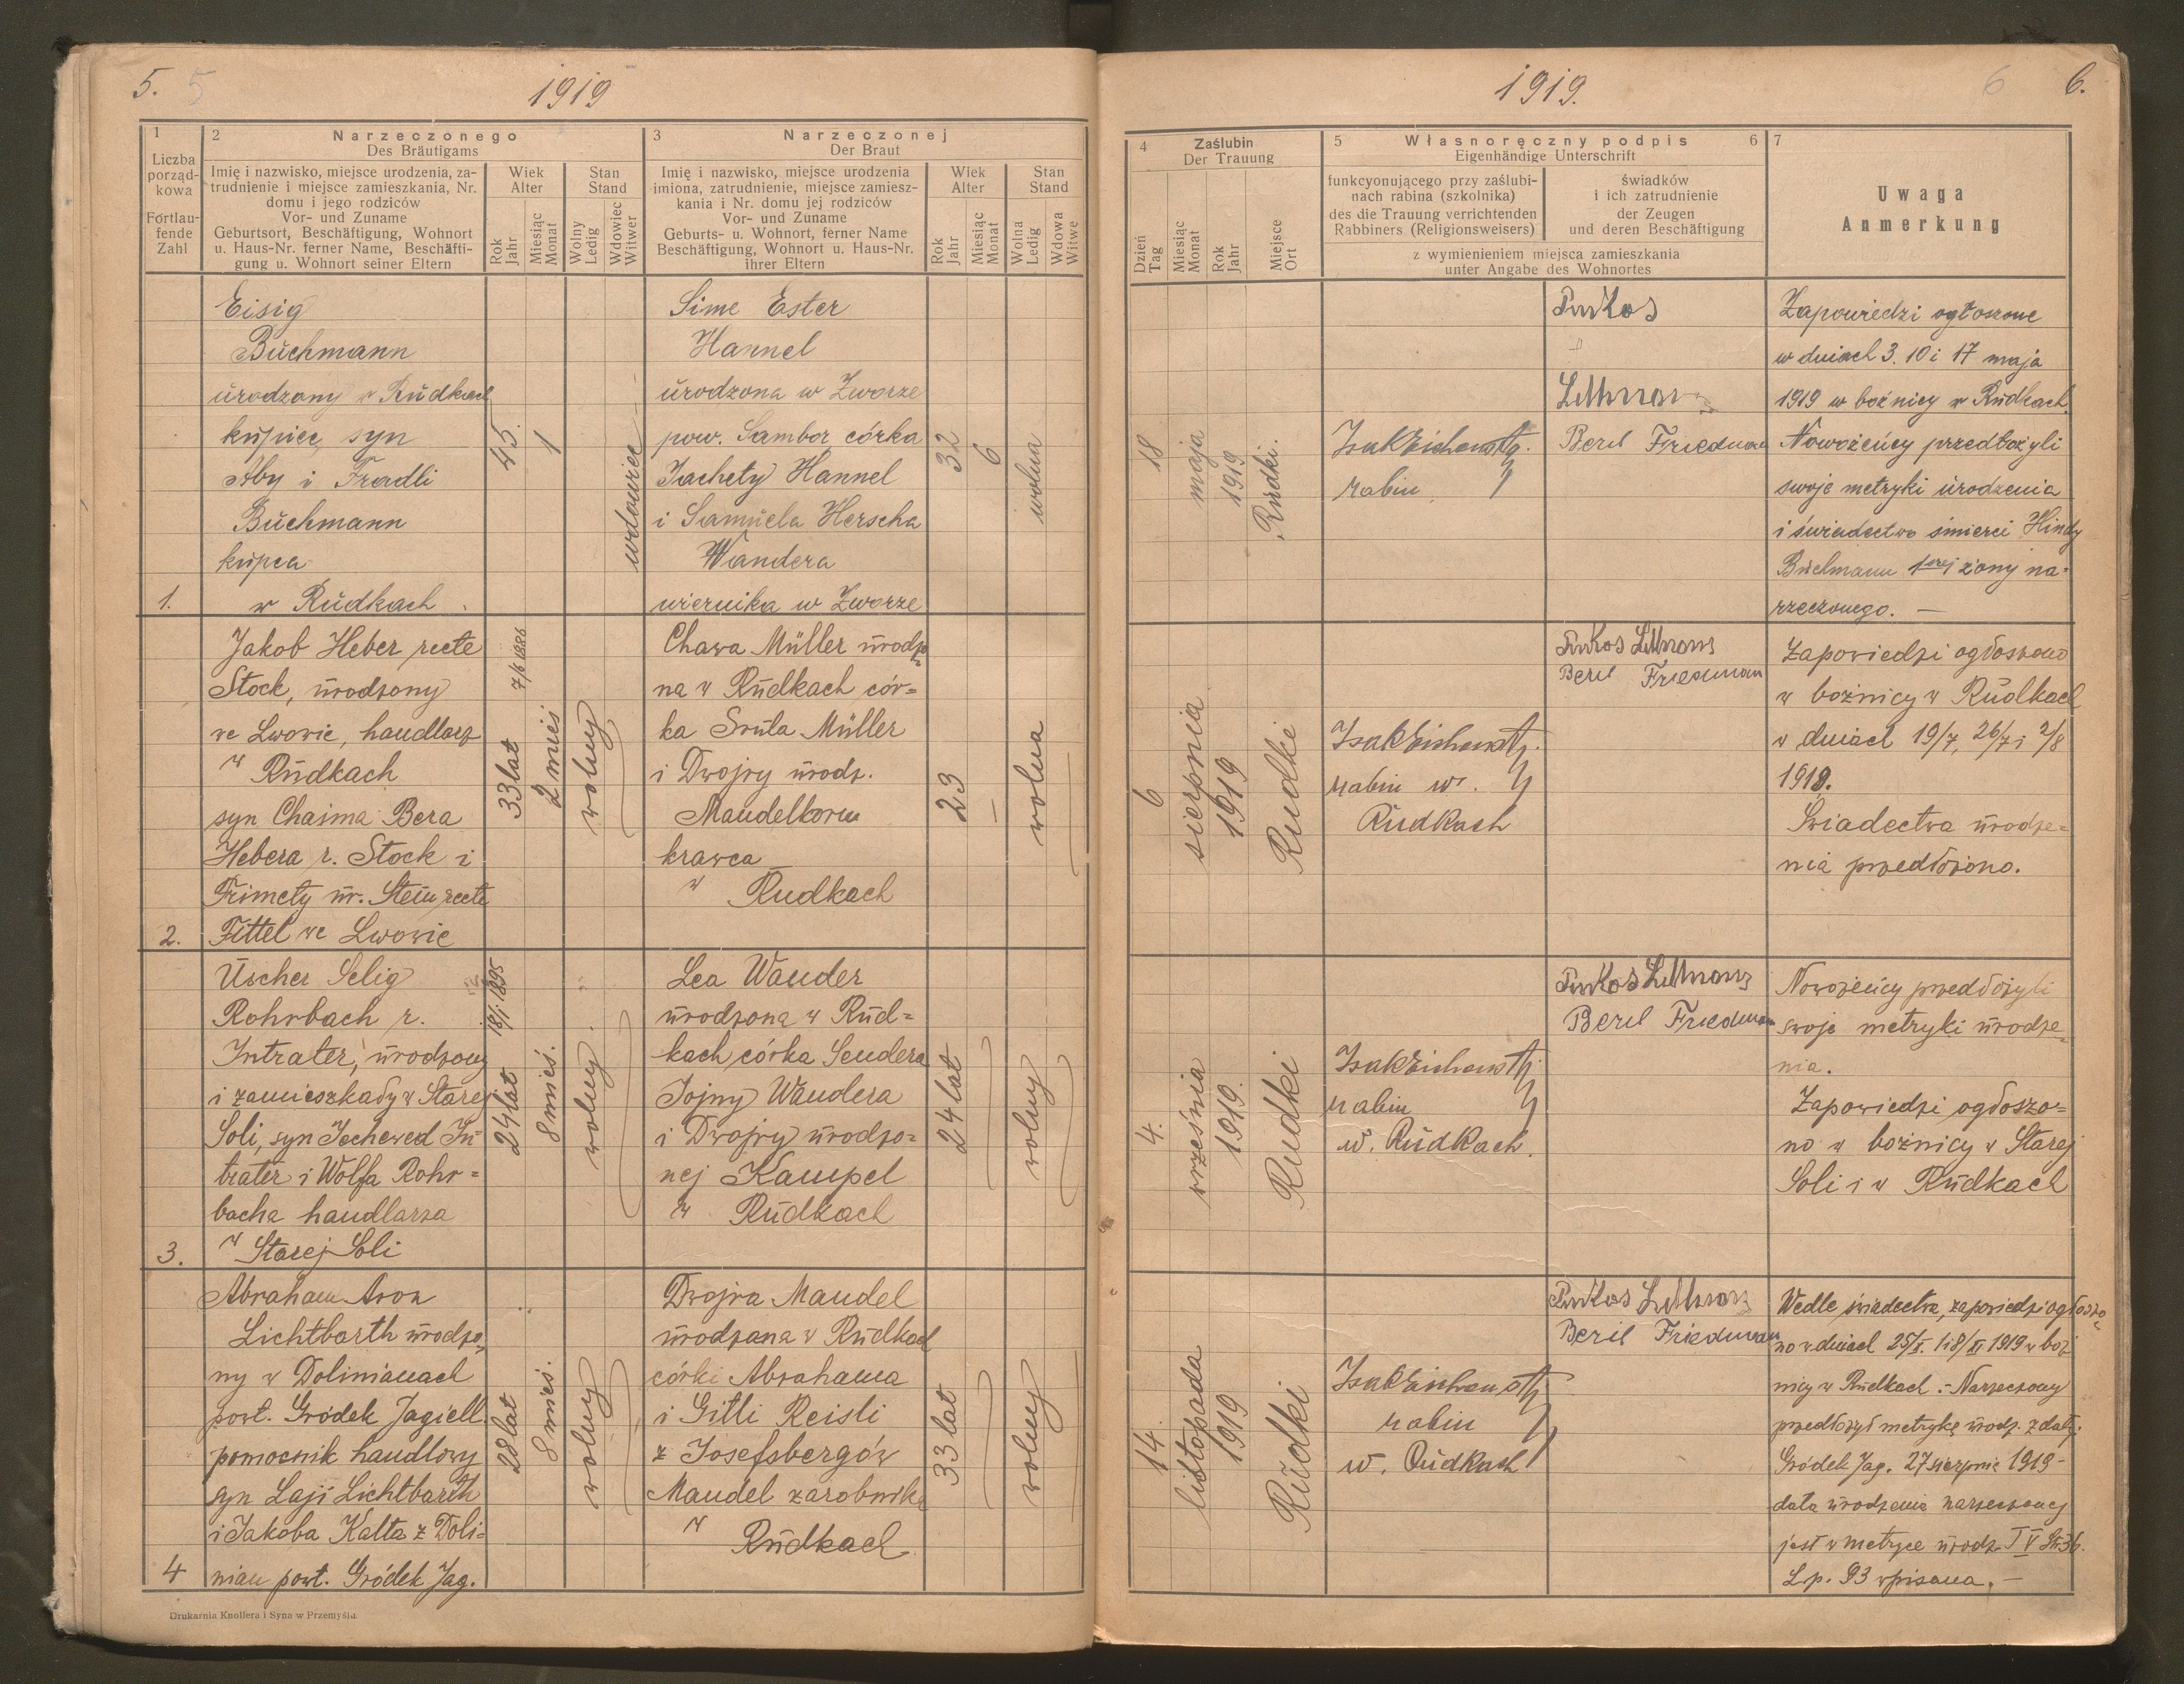 5. 5
1919
1
Liczba
porząd-
kowa
Fortlau-
fende
Zahl
2 Narzeczonego
Des Bräutigams
Imię i nazwisko, miejsce urodzenia, za-
trudnienie i miejsce zamieszkania, Nr.
domu i jego rodziców
Vor- und Zuname
Geburtsort, Beschäftigung, Wohnort
u. Haus-Nr. ferner Name, Beschäfti-
gung u. Wohnort seiner Eltern
Wiek
Alter
Rok
Jahr
Miesiąc
Monat
Stan
Stand
Wolny
Ledig
Wdowiec
Witwer
3 Narzeczonej
Der Braut
Imię i nazwisko, miejsce urodzenia
imiona, zatrudnienie, miejsce zamiesz-
kania i Nr. domu jej rodziców
Vor- und Zuname
Geburts- u. Wohnort, ferner Name
Beschäftigung, Wohnort u. Haus-Nr.
ihrer Eltern
Wiek
Alter
Rok
Jahr
Miesiąc
Monat
Stan
Stand
Wolna
Ledig
Wdowa
Witwe
Eisig
Buchmann
urodzony w Rudkach
kupiec, syn
Aby i Fradli
Buchmann
kupca
w Rudkach
1.
45.
1
wdowiec
Sime Ester
Hannel
urodzona w Zworze
pow. Sambor córka
Jachety Hannel
i Samuela Herscha
Wandera
wiernika w Zworze
32
6
wolna
Jakob Heber recte
Stock, urodzony
we Lwowie, handlarz
w Rudkach
syn Chaima Bera
Hebera r. Stock i
Frimety ur. Stein recte
Fittel we Lwowie
2.
7/6 1886
33 lat
2 mieś
wolny
Chawa Müller urodzo
na w Rudkach cór=
ka Srula Müller
i Dwojry urodz.
Mandelkorn
krawca
w Rudkach
23
—
wolna
Uscher Selig
Rohrbach r.
Intrater, urodzony
i zamieszkały w Starej
Soli, syn Jochewed In
trater i Wolfa Rohr=
bacha handlarza
w Starej Soli
3.
18/1 1895
24 lat
8 mieś.
wolny
Lea Wander
urodzona w Rud=
kach córka Sendera
Jojny Wandera
i Dwojry urodzo=
nej Kampel
w Rudkach
24 lat
wolny
Abraham Aron
Lichtbarth urodzo
ny w Dolinianach
powt. Gródek Jagiell.
pomocnik handlowy
syn Laji Lichtbarth
i Jakoba Kalta z Doli=
nian powt. Gródek Jag.
4
28 lat
8 mieś.
wolny
Dwojra Mandel
urodzona w Rudkach
córki Abrahama
i Gitli Reisli
z Josefsbergów
Mandel zarobnika
w
Rudkach
33 lat
wolny
Drukarnia Knollera i Syna w Przemyślu.
1919.
6 6.
4 Zaślubin
Der Trauung
Dzień
Tag
Miesiąc
Monat
Rok
Jahr
Miejsce
Ort
5 Własnoręczny podpis 6
Eigenhändige Unterschrift
funkcyonującego przy zaślubi-
nach rabina (szkolnika)
des die Trauung verrichtenden
Rabbiners (Religionsweisers)
świadków
i ich zatrudnienie
der Zeugen
und deren Beschäftigung
z wymienieniem miejsca zamieszkania
unter Angabe des Wohnortes
7
Uwaga
Anmerkung
18
maja
1919
Rudki.
rabin
Beril Friedman
Zapowiedzi ogłoszone
w dniach 3. 10 i 17 maja
1919 w bożnicy w Rudkach.
Nowożeńcy przedłożyli
swoje metryki urodzenia
i świadectwo śmierci Hindy
Buchmann 1szej żony na=
rzeczonego. —
6
sierpnia
1919
Rudki
rabin w.
Rudkach
Beril Friedman
Zapowiedzi ogłoszono
w bożnicy w Rudkach
w dniach 19/7, 26/7 i 2/8
1919.
Świadectwa urodze=
nia przedłożono.
4.
września
1919.
Rudki
rabin
w. Rudkach.
Beril Friedman
Nowożeńcy przedłożyli
swoje metryki urodze
nia.
Zapowiedzi ogłoszo=
no w bożnicy w Starej
Soli i w Rudkach
14.
listopada
1919
Rudki
rabin
w. Rudkach
Beril Friedman
Wedle świadectwa, zapowiedzi ogłoszo
no w dniach 25/X. 1 i 8/XI 1919 w boż
nicy w Rudkach. - Narzeczony
przedłożył metrykę urodz. z datą:
Gródek Jag. 27 sierpnia 1919 -
data urodzenia narzeczonej
jest w metryce urodz. T V Str 36.
L.p. 93 wpisana. —